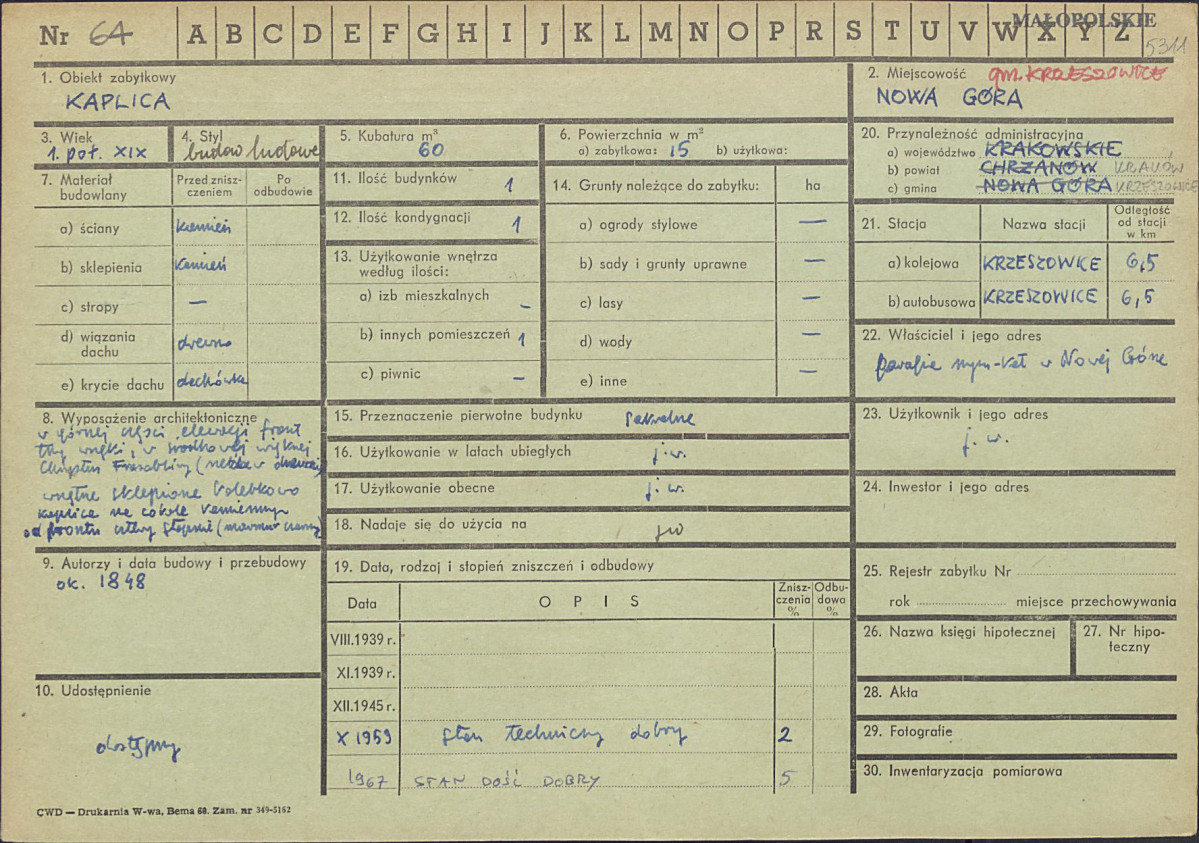 Nr 64 A B C D E F G H I J K L M N O P R S T U V W X Y Z
MAŁOPOLSKIE
5311
1. Obiekt zabytkowy
KAPLICA
2. Miejscowość gm. KRZESZOWICE
NOWA GÓRA
3. Wiek
1. poł. XIX
4. Styl
budow ludowe
5. Kubatura m³
60
6. Powierzchnia w m²
a) zabytkowa: 15 b) użytkowa:
20. Przynależność administracyjna
a) województwo KRAKOWSKIE
b) powiat CHRZANÓW KRAKÓW
c) gmina NOWA GÓRA KRZESZOWICE
7. Materiał budowlany
Przed zniszczeniem
Po odbudowie
a) ściany kamień
b) sklepienia kamień
c) stropy —
d) wiązania dachu drewno
e) krycie dachu dachówka
11. Ilość budynków 1
12. Ilość kondygnacji 1
13. Użytkowanie wnętrza według ilości:
a) izb mieszkalnych –
b) innych pomieszczeń 1
c) piwnic –
14. Grunty należące do zabytku: ha
a) ogrody stylowe —
b) sady i grunty uprawne —
c) lasy —
d) wody —
e) inne —
21. Stacja
Nazwa stacji
Odległość od stacji w km
a) kolejowa KRZESZOWICE 6,5
b) autobusowa KRZESZOWICE 6,5
22. Właściciel i jego adres
parafia rzym-kat w Nowej Górze
8. Wyposażenie architektoniczne
w górnej części elewacji front
trzy wnęki, w środkowej większej
Chrystus Frasobliwy
wnętrze sklepione kolebkowo
kaplica na cokole kamiennym
od frontu cztery stopnie (marmur czarny)
15. Przeznaczenie pierwotne budynku sakralne
16. Użytkowanie w latach ubiegłych j.w.
17. Użytkowanie obecne j.w.
18. Nadaje się do użycia na jw
23. Użytkownik i jego adres
j. w.
24. Inwestor i jego adres
9. Autorzy i data budowy i przebudowy
ok. 1848
19. Data, rodzaj i stopień zniszczeń i odbudowy
Data
OPIS
Znisz-
czenia
%
Odbu-
dowa
%
VIII.1939 r.
XI.1939 r.
XII.1945 r.
X 1959 stan techniczny dobry 2
1967 STAN DOŚĆ DOBRY 5
25. Rejestr zabytku Nr
rok miejsce przechowywania
26. Nazwa księgi hipotecznej
27. Nr hipo-
teczny
10. Udostępnienie
dostępny
28. Akta
29. Fotografie
30. Inwentaryzacja pomiarowa
CWD — Drukarnia W-wa, Bema 60. Zam. nr 349-5162